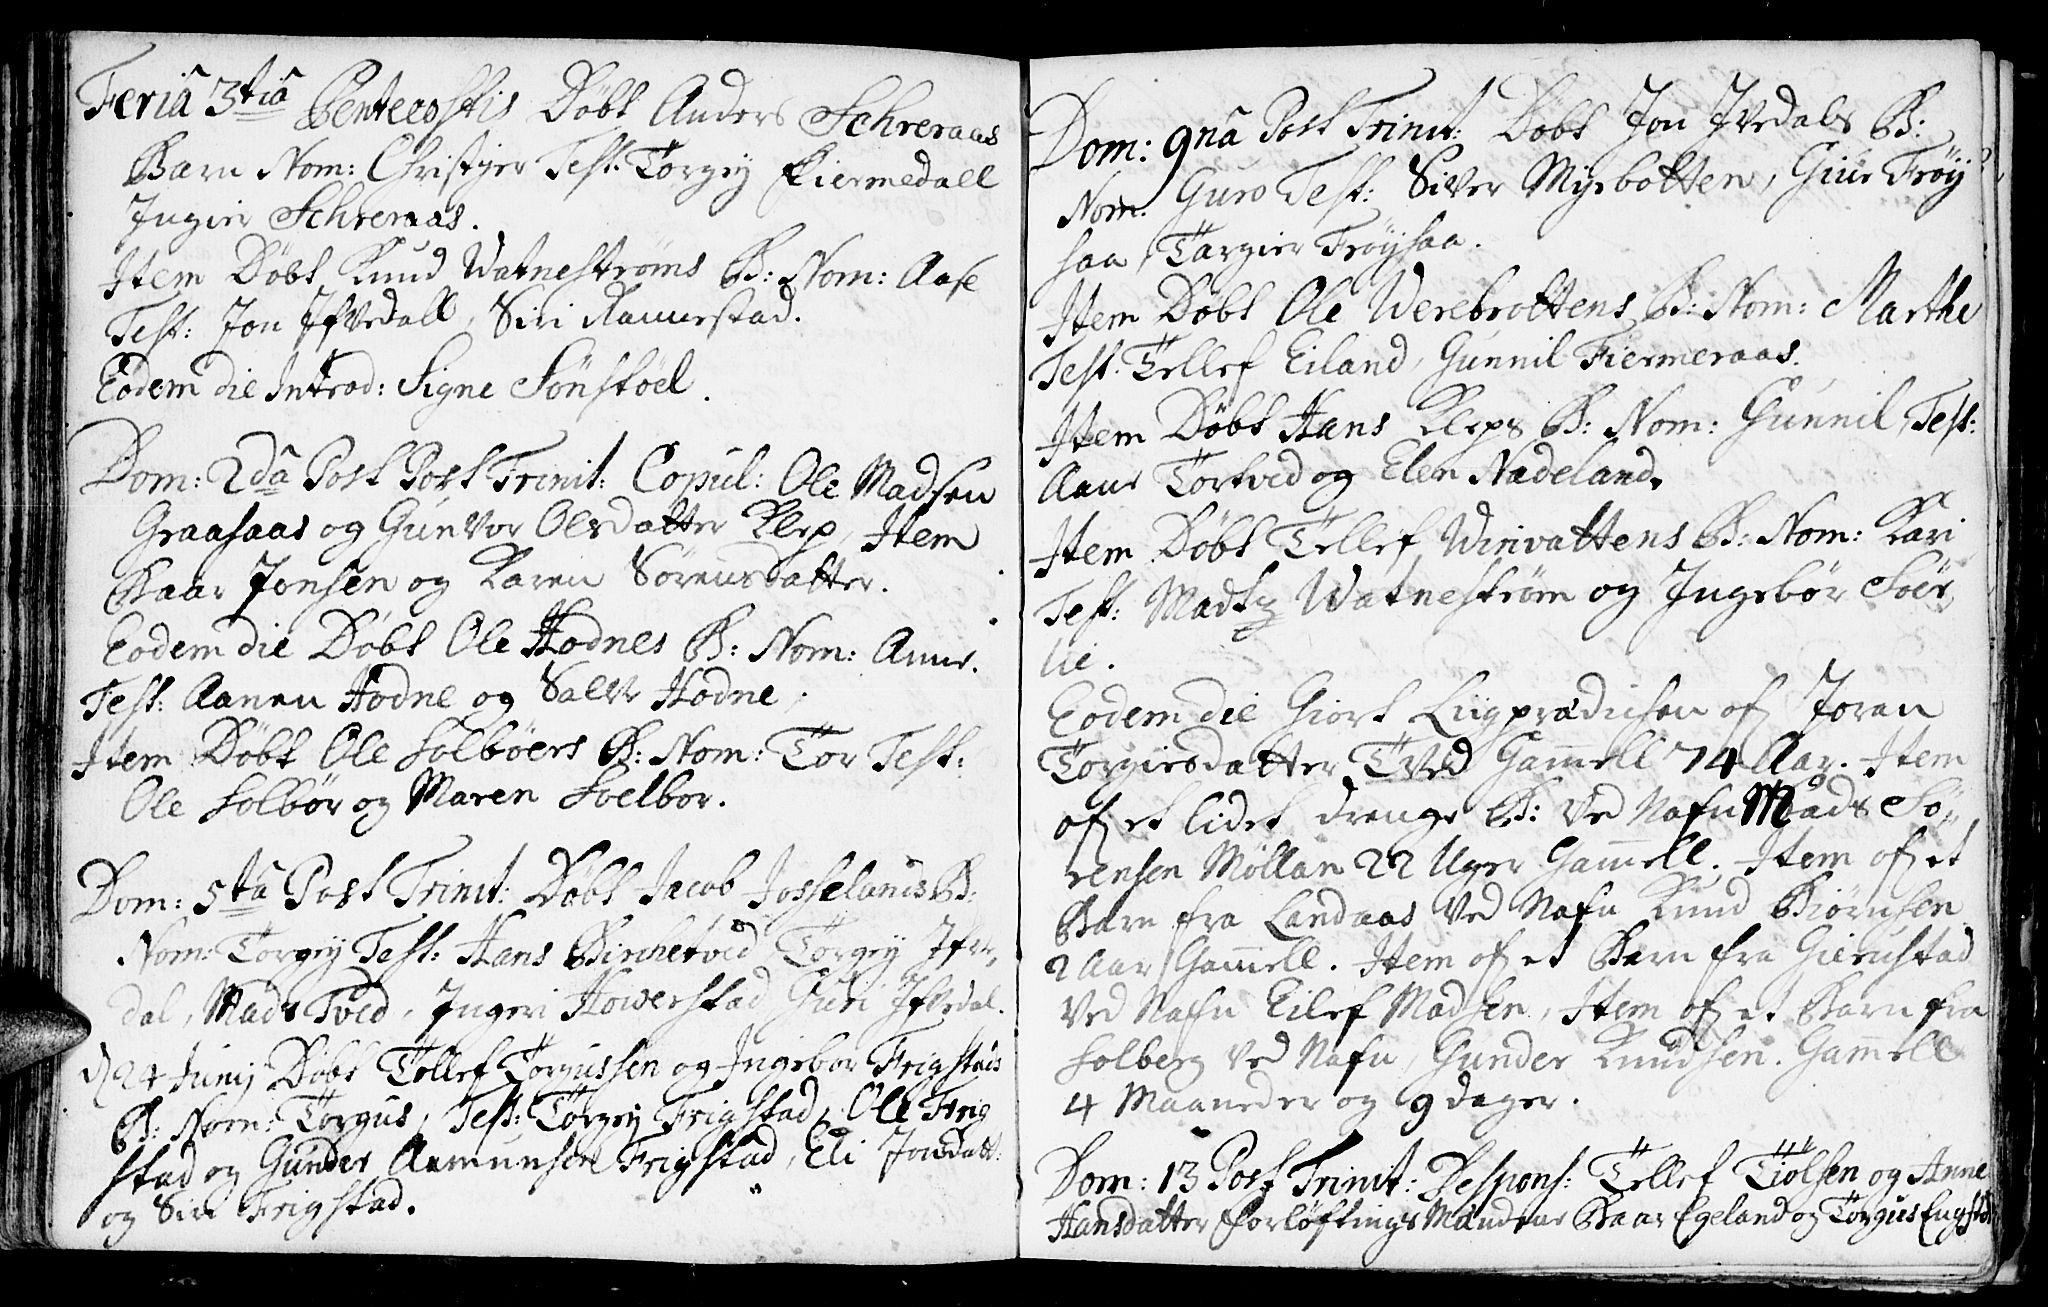 Feriâ 3tiâ Pentecostis Döbt Anders Schreraas
Barn Nom: Christjer Test: Torgey Fiermedall
Ingier Schreraas.
Item Döbt Knud Watneströms B: Nom: Aase
Test: Jon Ifvedall, Siri Ramerstad.
Eodem die Introd: Signe Sönstöel.
Dom: 2dâ Post Post Trinit: Copul: Ole Madsen
Graasaas og Gunvor Olesdatter Klep, Item
Baar Jonsen og Karen Sörensdatter.
Eodem die Döbt Ole Hodnes B: Nom: Anne.
Test: Aanen Hodne og Salve Hodne,
Item Döbt Ole Solböers B: Nom: Tor Test:
Ole Solbör og Maren Soelbor.
Dom: 5tâ Post Trinit: Döbt Jacob Josselands B:
Nom: Torgey Test: Hans Birketvid Torgey Ifve,
dal, Mads Tved, Ingeri Howerstad Guri Ifvedal.
d 24 Junij Döbt Tellef Torgussen og Ingebor Frigstads
B: Nom: Torgus, Test: Torgey Frigstad, Ole Frig
stad og Gunder Aamunsen Frigstad, Eli Jonsdatt:
og Siri Frigstad.
Dom: 9nâ Post Trinit: Döbt Jon Ivedals B:
Nom: Guro Test: Siver Myrbotten, Giur Fröy
saa, Targier Fröysaa.
Item Döbt Ole Werebrottens B: Nom: Marthe
Test: Tellef Eiland, Gunnil Fiermeraas.
Item Döbt Hans Kleps B: Nom: Gunnil, Test:
Aane Tortved og Elen Nadeland.
Item Döbt Tellef Wirivattens B: Nom: Kari
Test: Mads Watneström og Ingebör Soer,
lie.
Eodem die Giort Liigprædichen of Joran
Torgiersdatter Tved Gammell 74 Aar. Item
of et lidet drenge B: ved Nafn Mads Sö,,
rensen Möllan 22 Uger Gammell. Item of et
Barn fra Landaas ved Nafn Knud Biörnsen
2 Aar Gammell. Item of et Barn fra Gierustad
ved Nafn Eilef Madsen, Item of et Barn fra
Solberg ved Nafn Gunder Knudsen. Gammell
4 Maaneder og 9 dager.
Dom: 13 Post Trinit: Despons: Tellef Tiölsen og Anne
Hansdatter Forlöftings Mændene Baar Egeland og Torgus